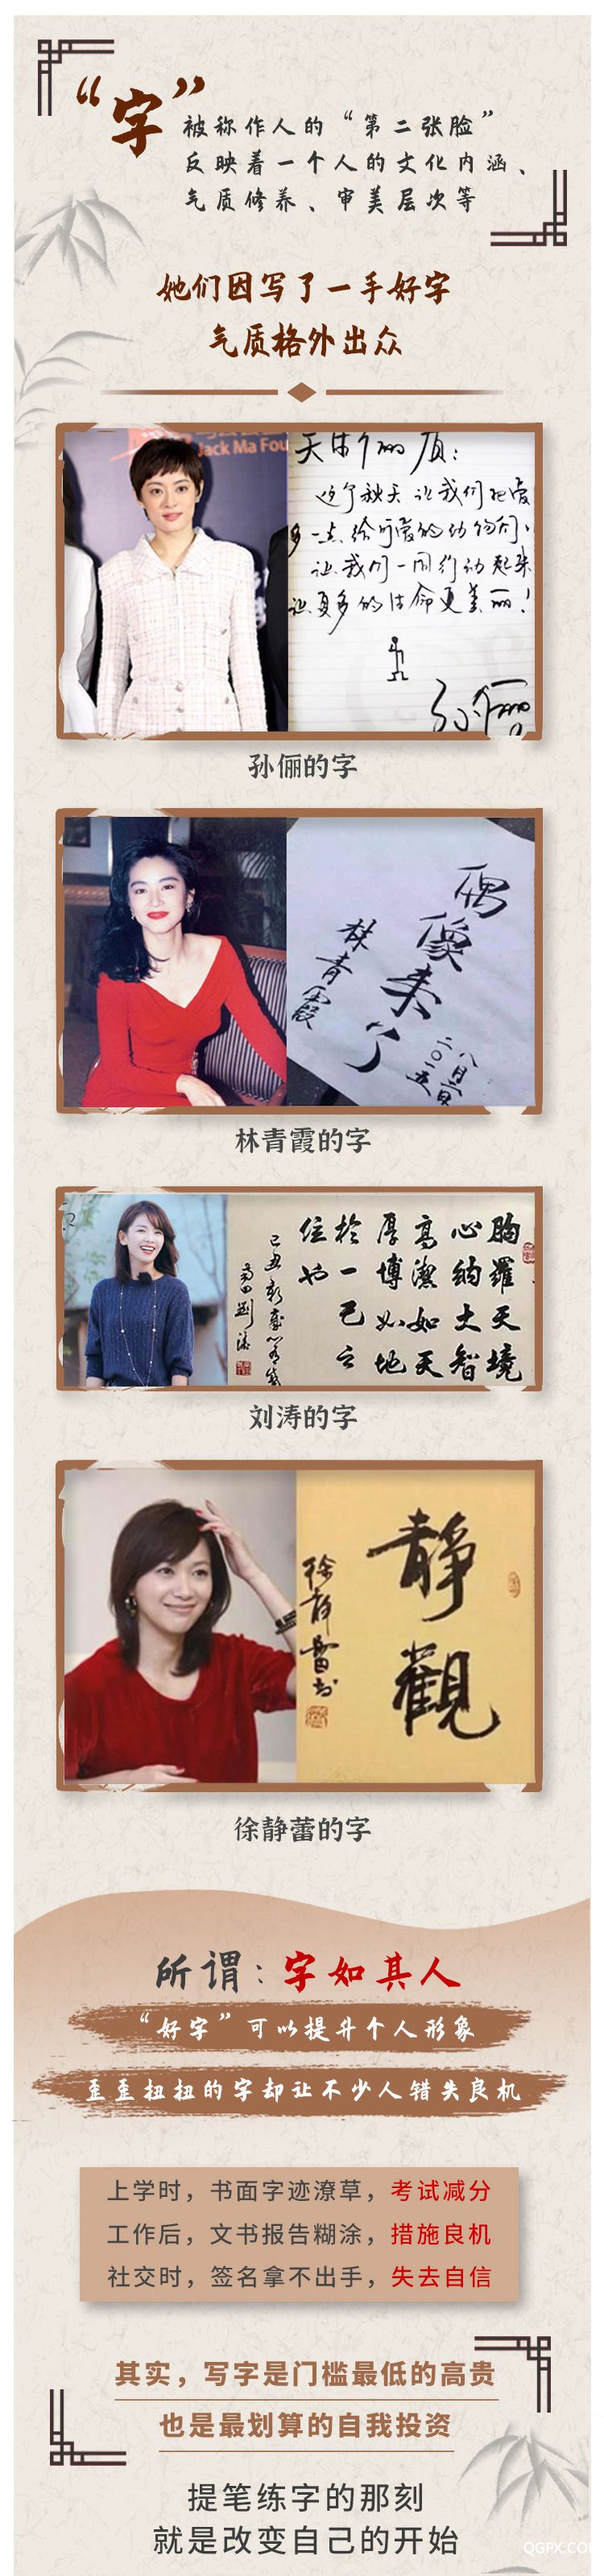 “字”
被称作人的“第二张脸”
反映着一个人的文化内涵、
气质修养、审美层次等
她们因写了一手好字
气质格外出众
Jack Ma Fou
这个秋天让我们把爱
多一点给可爱的动物们,
让我们一同行动起来
让更多的生命更美丽!
孙俪
孙俪的字
偶像来了
林青霞
二〇一五
八月二日
林青霞的字
胸罗天境
心纳大智
高潔如天
厚博如地
於一己之
位也
刘涛的字
靜觀
徐静蕾书
徐静蕾的字
所谓:字如其人
“好字”可以提升个人形象
歪歪扭扭的字却让不少人错失良机
上学时，书面字迹潦草，考试减分
工作后，文书报告糊涂，措施良机
社交时，签名拿不出手，失去自信
其实，写字是门槛最低的高贵
也是最划算的自我投资
提笔练字的那刻
就是改变自己的开始
QGPX.COM